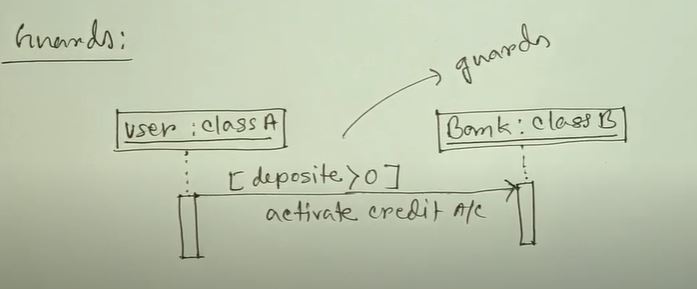 Guards:
guards
user : class A
Bank : class B
[deposite > 0]
activate credit A/c